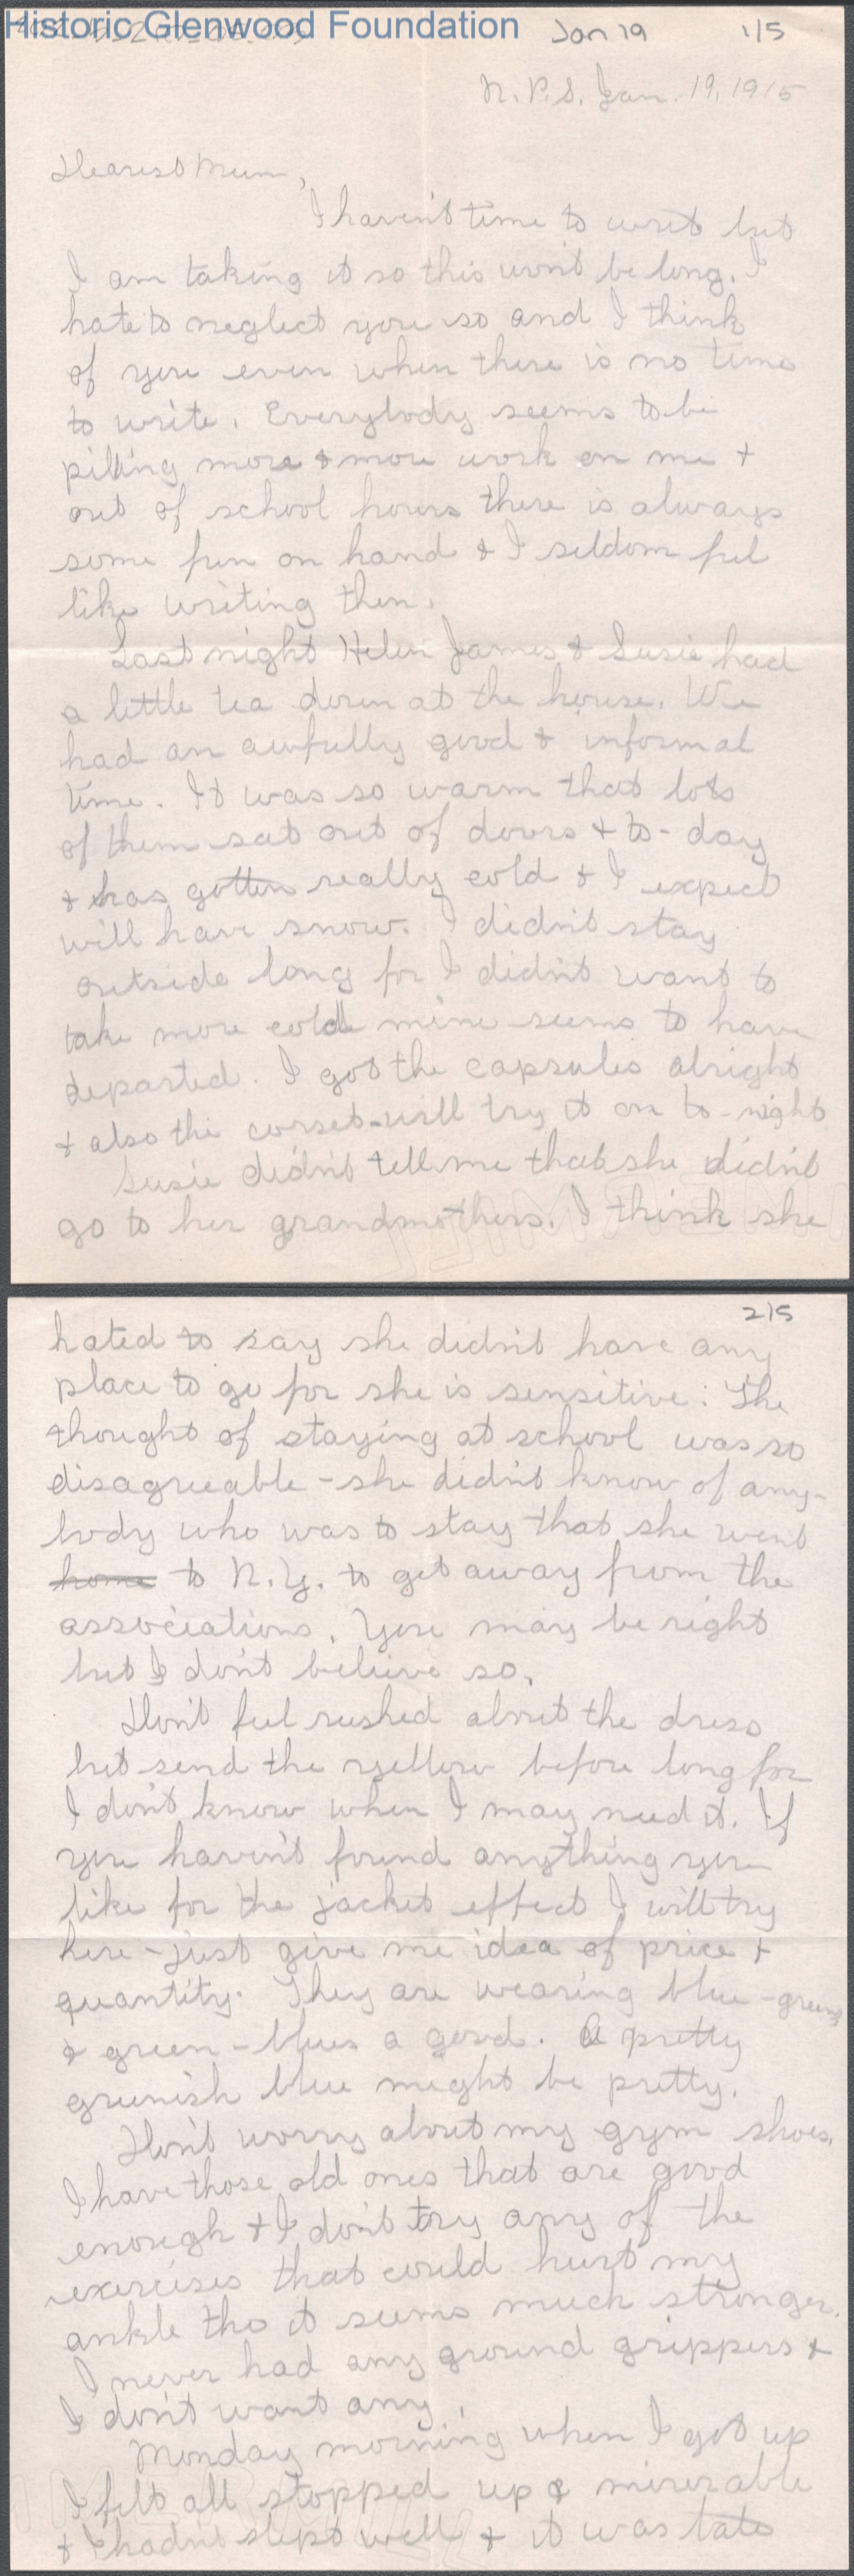 Historic Glenwood Foundation
Jan 19 1/5
N.P.S. Jan. 19, 1915
Dearest Mum,
I haven't time to write but
I am taking it so this won't be long. I
hate to neglect you so and I think
of you even when there is no time
to write. Everybody seems to be
pilling more & more work on me &
out of school hours there is always
some fun on hand & I seldom feel
like writing then.
Last night Helen James & Susie had
a little tea down at the house. We
had an awfully good & informal
time. It was so warm that lots
of them sat out of doors & to-day
& has gotten really cold & I expect
will have snow. I didn't stay
outside long for I didn't want to
take more cold mine seems to have
departed. I got the capsules alright
& also the corset-will try it on to-night
Susie didn't tell me that she didn't
go to her grandmothers. I think she
2/5
hated to say she didn't have any
place to go for she is sensitive: The
thought of staying at school was so
disagreeable - she didn't know of any-
body who was to stay that she went
home to N.Y. to get away from the
associations. You may be right
but I don't believe so.
Don't feel rushed about the dress
but send the yellow before long for
I don't know when I may need it. If
you haven't found anything you
like for the jacket effect I will try
here - just give me idea of price &
quantity. They are wearing blue-greens
& green-blues a good. A pretty
greenish blue might be pretty.
Don't worry about my gym shoes,
I have those old ones that are good
enough & I don't try any of the
exercises that could hurt my
ankle tho it seems much stronger.
I never had any ground grippers &
I don't want any.
Monday morning when I got up
I felt all stopped up & miserable
& I hadn't slept well & it was late